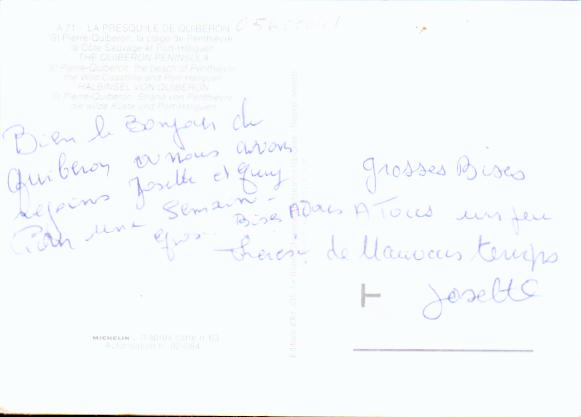 A 71 - LA PRESQU'ILE DE QUIBERON
St Pierre-Quiberon, la plage de Penthièvre
la Côte Sauvage et Port-Haliguen
THE QUIBERON PENINSULA
St Pierre-Quiberon, the beach of Penthièvre
the Wild Coastline and Port-Haliguen
HALBINSEL VON QUIBERON
St Pierre-Quiberon, Strand von Penthièvre
die wilde Küste und Port-Haliguen
Bien le Bonjour de
Quiberon ou nous avons
rejoins Josette et Guy
Pour une Semaine
gros Bises A Tous
Thérèse
grosses Bises
A Tous un peu
de Mauvais temps
Josette
MICHELIN - D'après carte n° 63
Autorisation n°